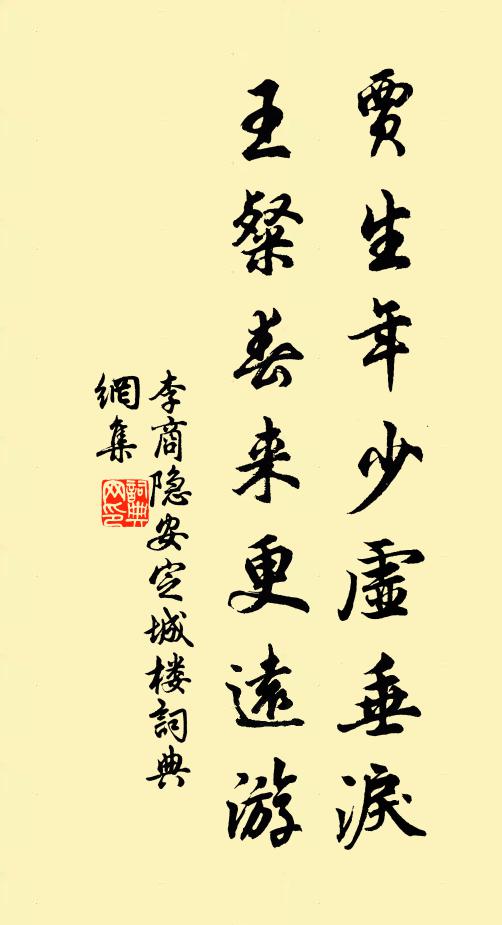 賈生年少虛垂淚
王粲春来更遠游
李商隐安定城楼詞典
網集
詞典
网印